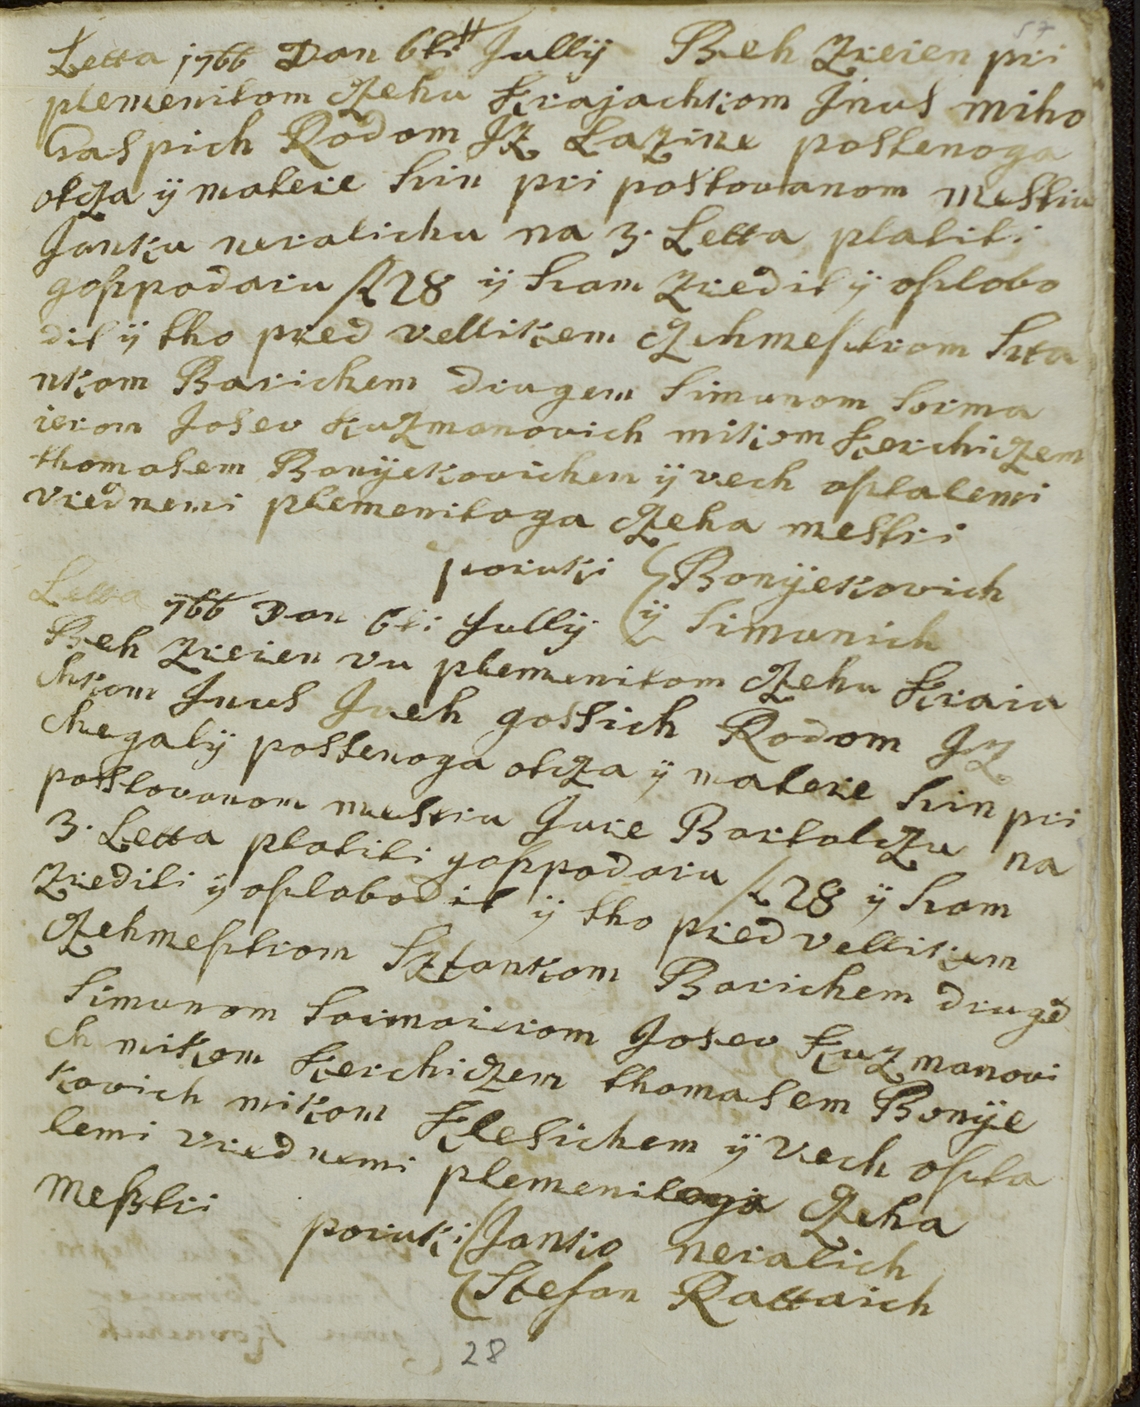 57
Letta 1766 Dan 6ti Jullÿ Beh zreien pri
plemenitom Czehu Krajachkom Jnus miho
Gaspich Rodom Jz Lazine postenoga
otcza ÿ matere Szin pri postovanom mestru
Janku neralichu na 3. Letta platiti
goszpodaru f 28 ÿ Szam zredil ÿ oszlobo
dil ÿ tho pred vellikem Czehmesztrom Szta
nkom Barichem drugem Simunom Sorma
ierom Josev Kuzmanovich mikom Kerchiczem
thomasem Bonÿekovichem ÿ vech osztalemi
vrednemi plemenitoga Czeha mestri
poruki Bonÿekovich
ÿ Simunich
Letta 766 Dan 6ti Jullÿ
Beh zreien vu plemenitom Czehu Kraia
chkom Jnus Jveh gossich Rodom Jz
Chegalÿ postenoga otcza ÿ matere Szin pri
postovanom mestru Jure Bartolczu na
3. Letta platiti goszpodaru f 28 ÿ Szam
zrediti ÿ oszlobodit ÿ tho pred vellikem
Czehmesztrom Sztankom Barichem druged
Simunom Sormaierom Josev Kuzmanovi
ch mikom Kerchiczem thomasem Bonÿe
kovich mikom Klesichem ÿ vech oszta
lemi vrednemi plemenitoga Czeha
Mesztri
poruki Janko neralich
Stefan Rattaich
28